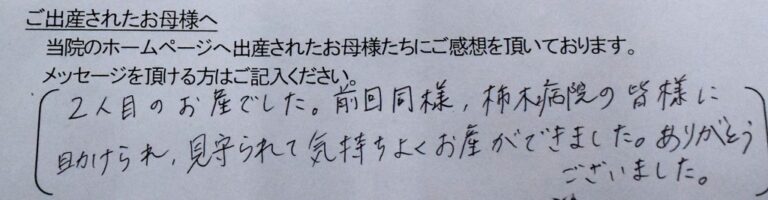 ご出産されたお母様へ
当院のホームページへ出産されたお母様たちにご感想を頂いております。
メッセージを頂ける方はご記入ください。
2人目のお産でした。前回同様,柿木病院の皆様に
助けられ,見守られて気持ちよくお産ができました。ありがとう
ございました。